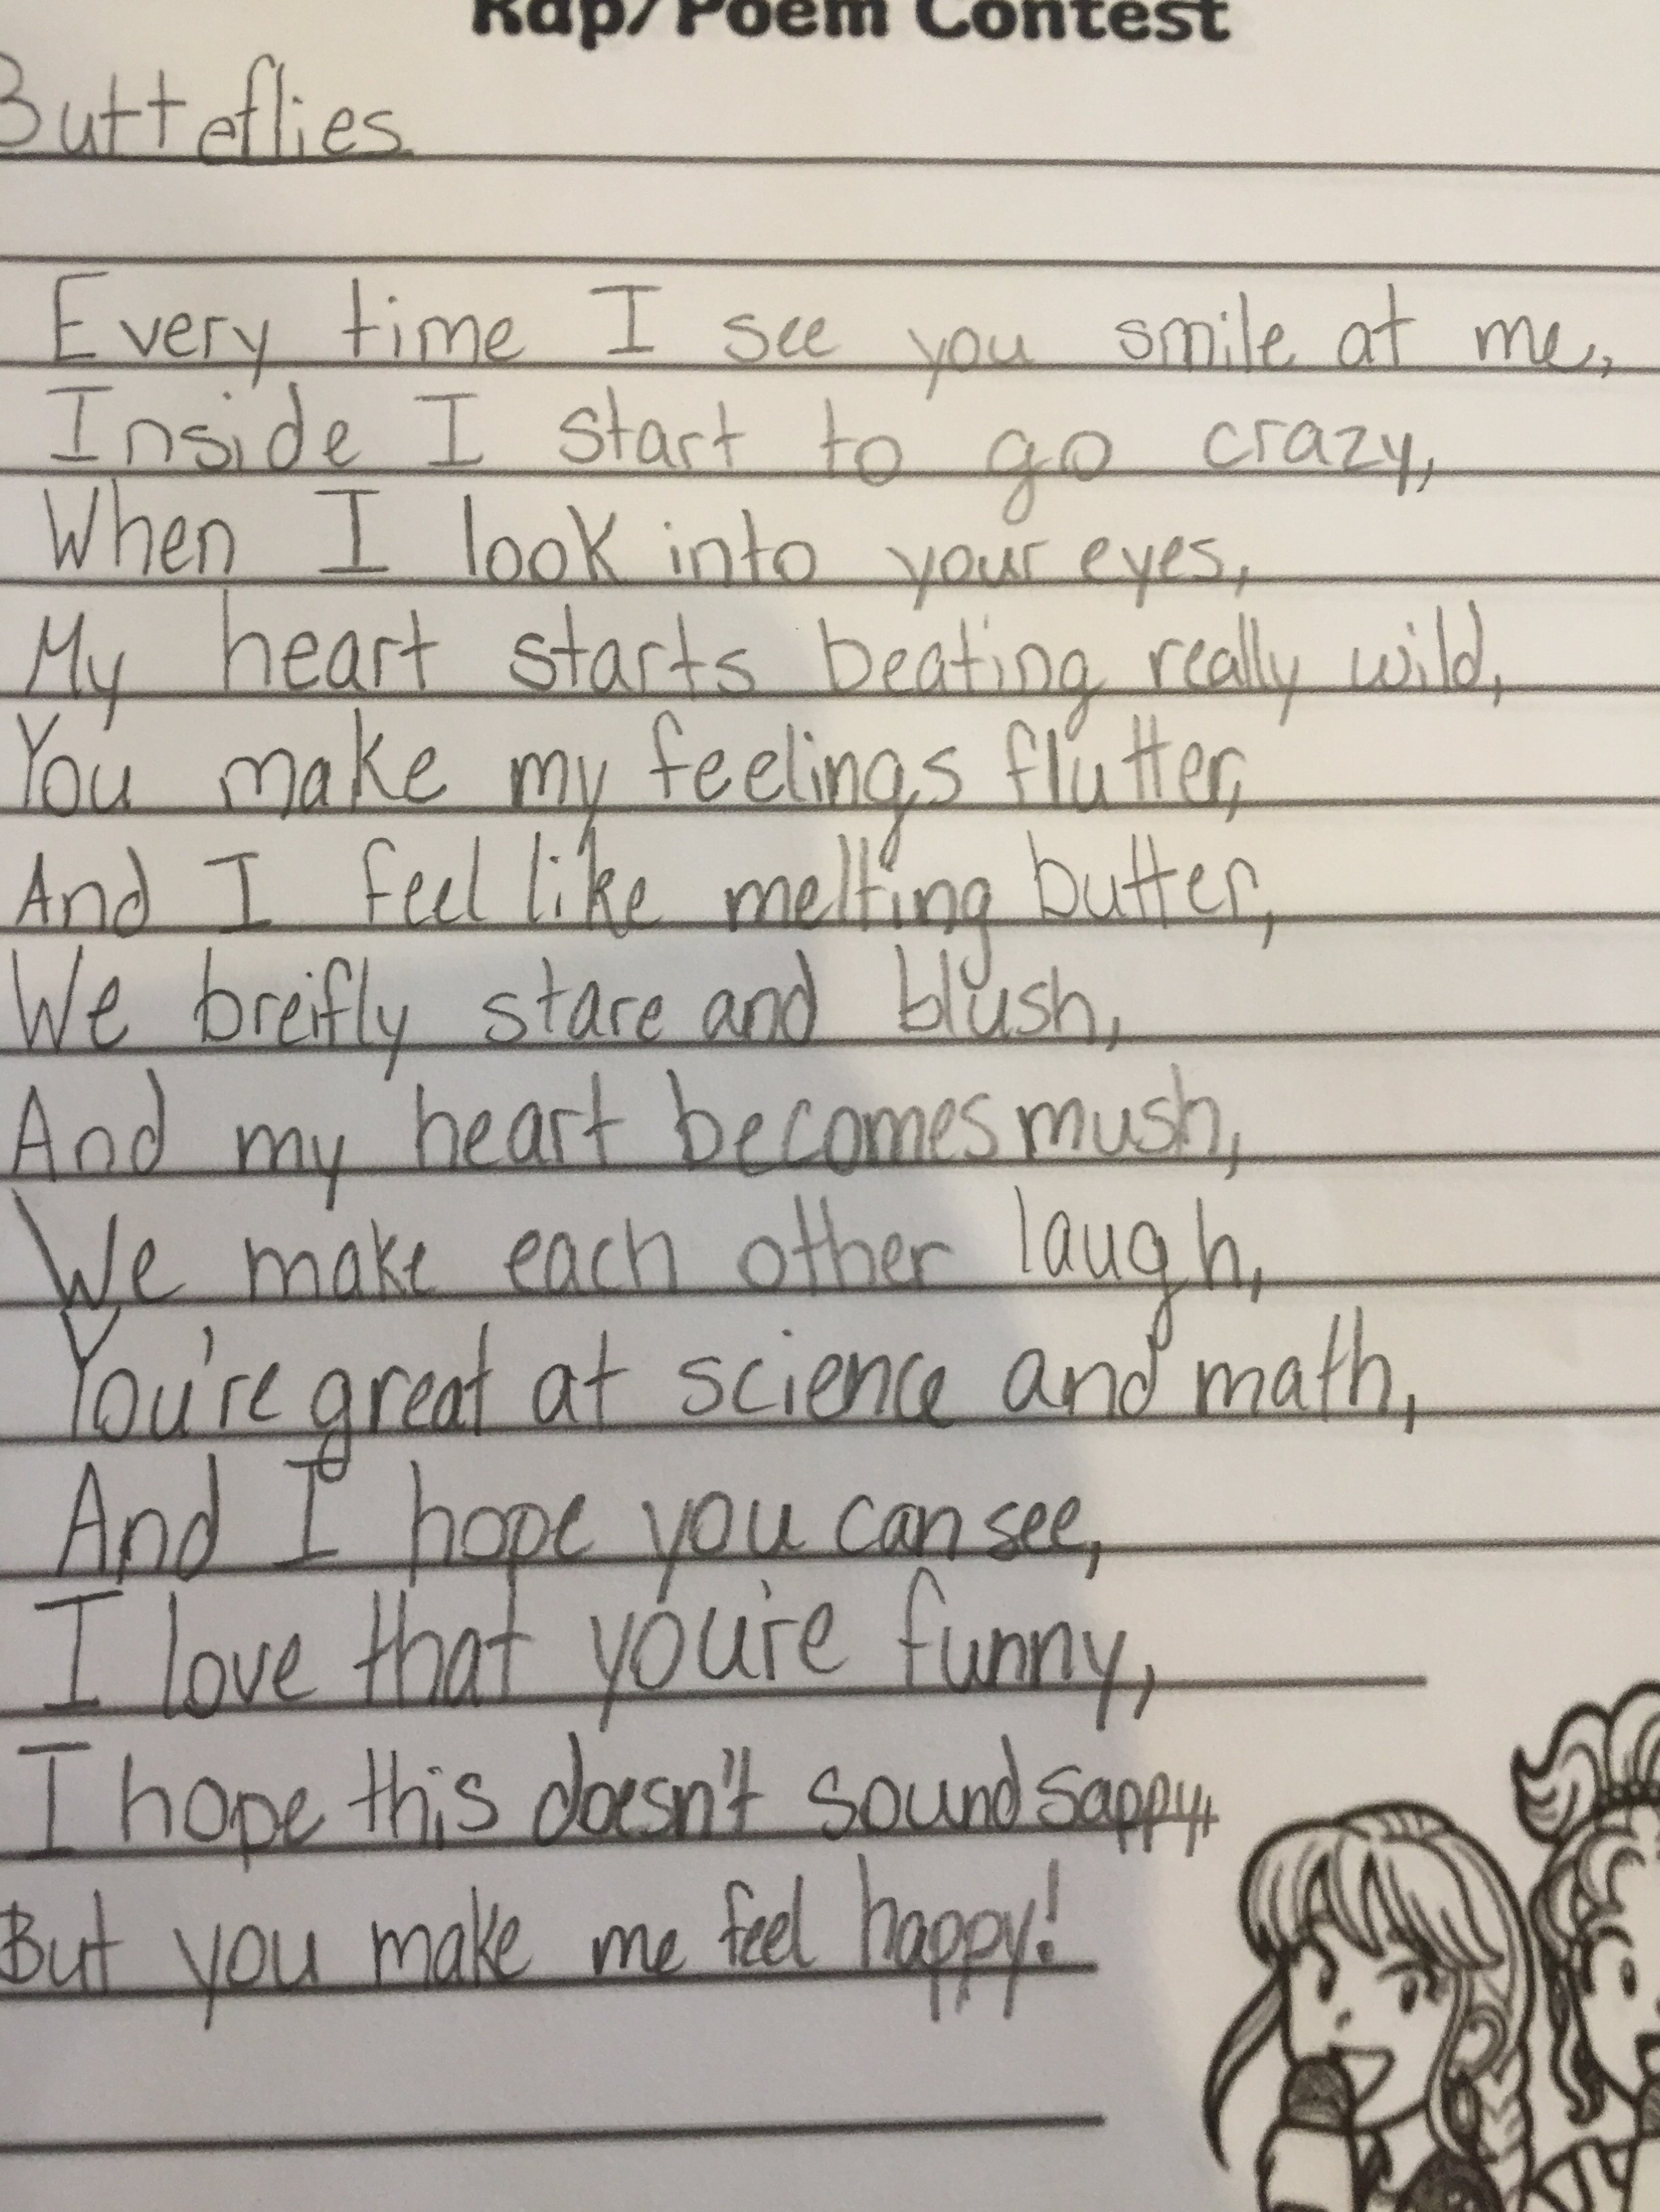 Rap/Poem Contest
Butteflies
Every time I see you smile at me,
Inside I start to go crazy,
When I look into your eyes,
My heart starts beating really wild,
You make my feelings flutter,
And I feel like melting butter,
We breifly stare and blush,
And my heart becomes mush,
We make each other laugh,
You're great at science and math,
And I hope you can see,
I love that you're funny,
I hope this doesn't sound sappy,
But you make me feel happy!